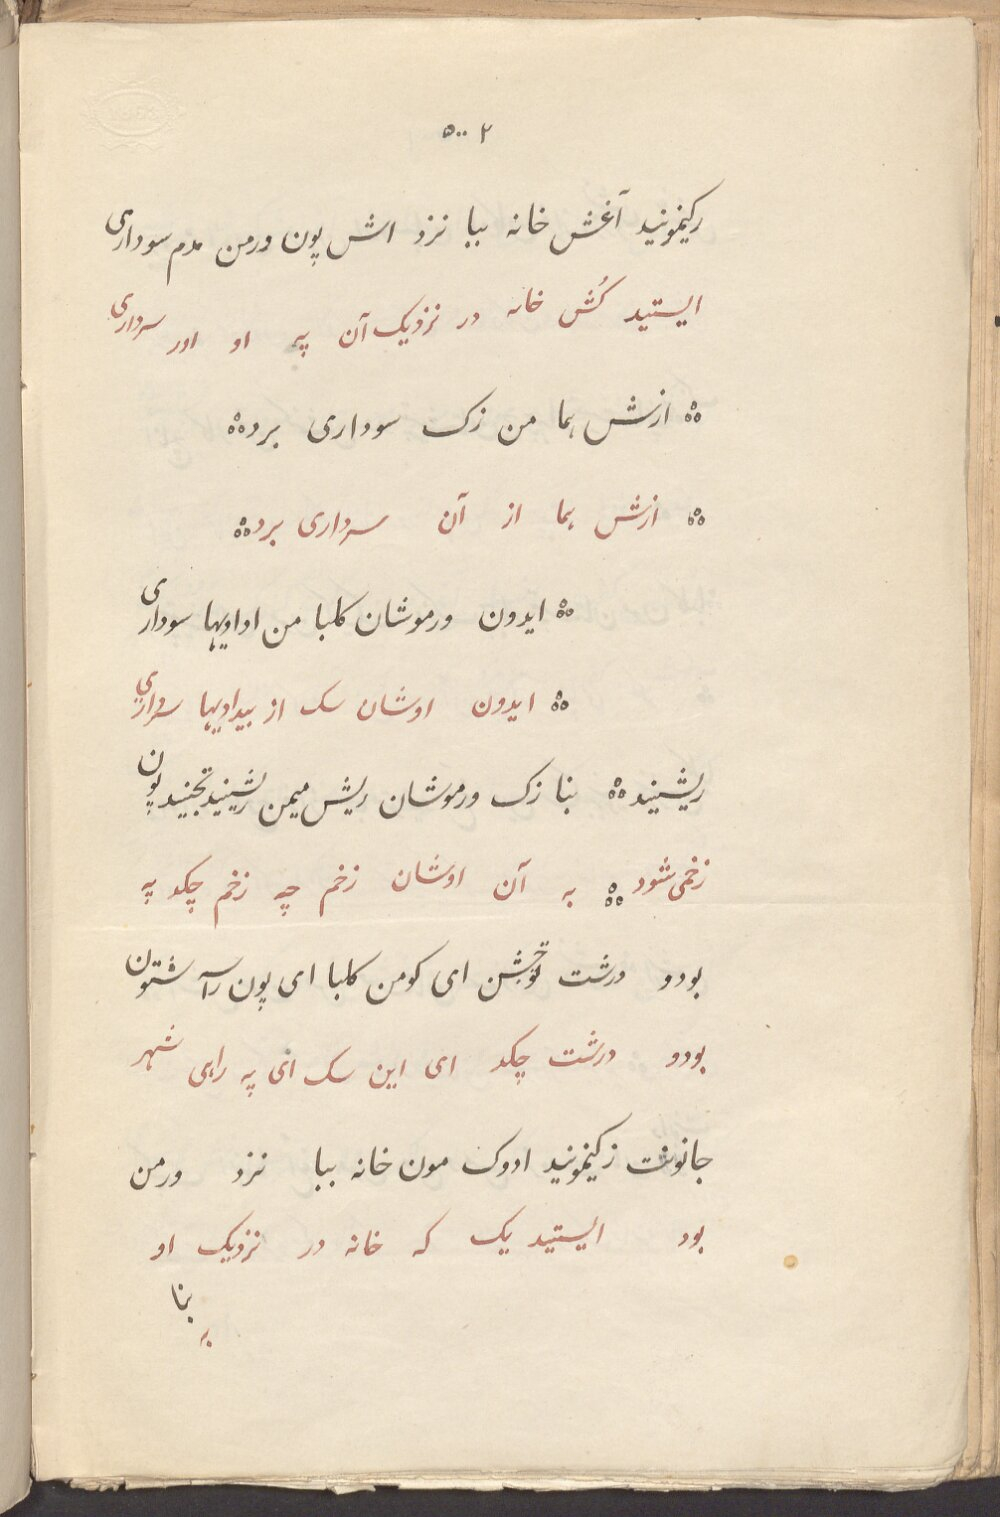 ۵۰۰۲
رکیمونید آغش خانه ببا نزد اش پون ورمن مدم سوداری
ایستید کُش خانه در نزدیک آن په او اور سرداری
ازش هما من زک سوداری برد
ازش هما از آن سرداری برد
ایدون ورموشان کلبا من ادادیها سوداری
ایدون اوشان سک از بیدادیها سرداری
ریشینید بنا زک ورموشان ریش میمن ریشینید تجنید پون
زخمی شود به آن اوشان زخم چه زخم چکد په
بودو درشت توخشن ای کومن کلبا ای پون رآس شتون
بودو درشت چکد ای این سک ای په راهی شهر
جانونت زکیمونید ادوک مون خانه ببا نزد ورمن
بود ایستید یک که خانه در نزدیک او
بنا
به